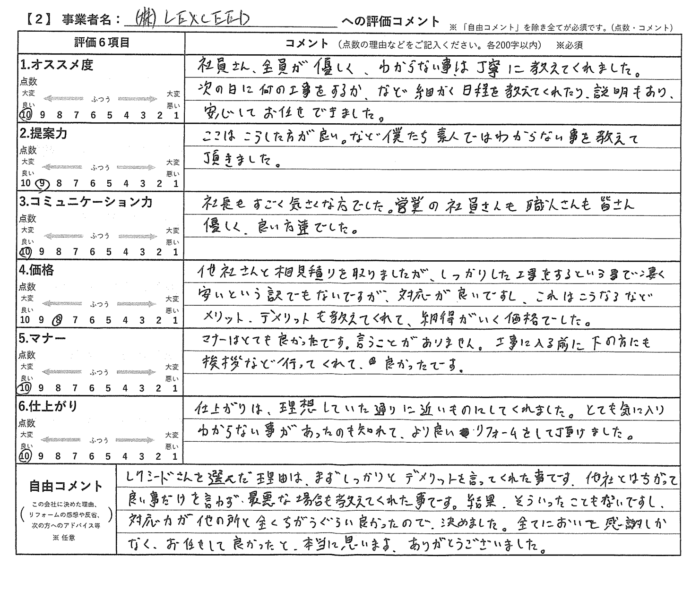 【2】事業者名： ㈱ LEXCEED への評価コメント ※「自由コメント」を除き全てが必須です。（点数・コメント）
評価６項目 コメント（点数の理由などをご記入ください。各200字以内） ※必須
1.オススメ度
点数
大変良い ふつう 大変悪い
10 9 8 7 6 5 4 3 2 1
社員さん、全員が優しく、わからない事は丁寧に教えてくれました。
次の日に何の工事をするか、など細かく日程を教えてくれたり、説明もあり、
安心してお任せできました。
2.提案力
点数
大変良い ふつう 大変悪い
10 9 8 7 6 5 4 3 2 1
ここはこうした方が良い。など僕たち素人ではわからない事を教えて
頂きました。
3.コミュニケーション力
点数
大変良い ふつう 大変悪い
10 9 8 7 6 5 4 3 2 1
社長もすごく気さくな方でした。営業の社員さんも職人さんも皆さん
優しく、良い方達でした。
4.価格
点数
大変良い ふつう 大変悪い
10 9 8 7 6 5 4 3 2 1
他社さんと相見積りを取りましたが、しっかりした工事をするという事で凄く
安いという訳でもないですが、対応が良いですし、これはこうなるなど
メリット、デメリットも教えてくれて、納得がいく価格でした。
5.マナー
点数
大変良い ふつう 大変悪い
10 9 8 7 6 5 4 3 2 1
マナーはとても良かったです。言うことがありません。工事に入る前に下の方にも
挨拶など行ってくれて、良かったです。
6.仕上がり
点数
大変良い ふつう 大変悪い
10 9 8 7 6 5 4 3 2 1
仕上がりは、理想していた通りに近いものにしてくれました。とても気に入り
わからない事があったのも知れて、より良いリフォームをして頂けました。
自由コメント
（この会社に決めた理由、
リフォームの感想や反省、
次の方へのアドバイス等）
※ 任意
レクシードさんを選んだ理由は、まずしっかりとデメリットを言ってくれた事です。他社とはちがって
良い事だけを言わず、最悪な場合も教えてくれた事です。結果、そういったこともないですし、
対応力が他の所と全くちがうぐらい良かったので、決めました。全てにおいて感謝しか
なく、お任せして良かったと、本当に思います。ありがとうございました。